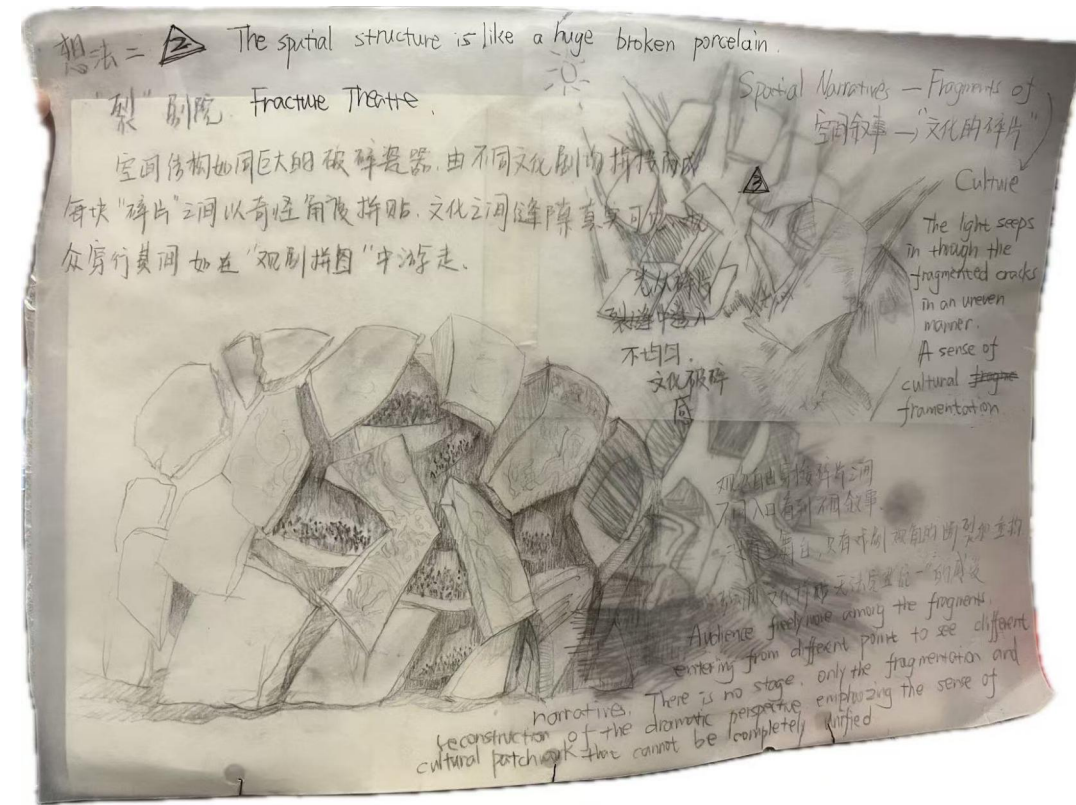 想法二 2 The spatial structure is like a huge broken porcelain.
"裂"剧院 Fracture Theatre.
空间结构如同巨大的破碎瓷器,由不同文化剧场拼接而成
每块"碎片"之间以奇怪角度拼贴,文化之间缝隙真实可
众穿行其间如在"观剧拼图"中游走.
Spatial Narratives — Fragments of
空间叙事 → "文化的碎片"
Culture
3
The light seeps
in though the
fragmented cracks
in an uneven
manner.
A sense of
cultural
framentation
光从碎片
裂缝中透入
不均匀.
文化破碎
观众自由 碎片之间
入口看到不同叙事.
只有戏剧视角的断裂和重构
Audience freely move among the fragments,
entering from different point to see different
narratives. There is no stage, only the fragmentation and
reconstruction of the dramatic perspective emphazing the sense of
cultural patchwork that cannot be completely unified